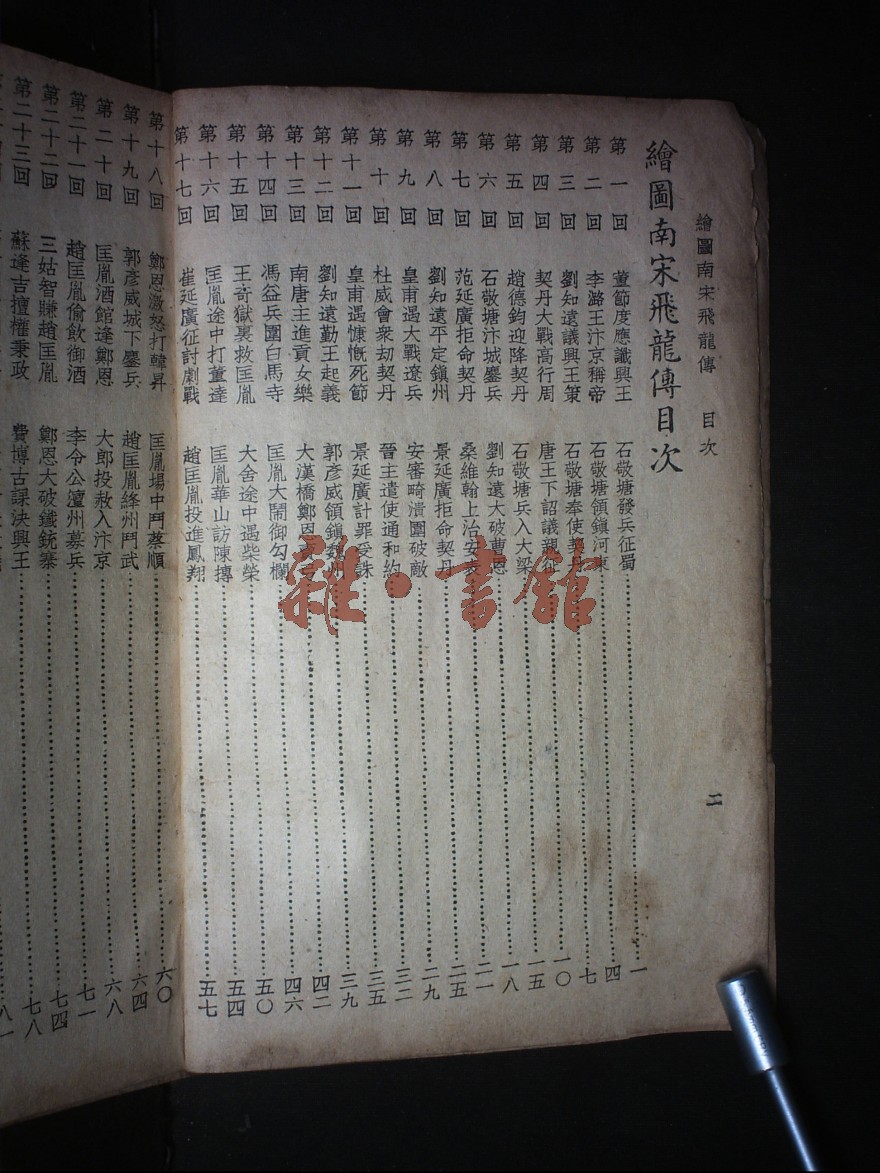 繪圖南宋飛龍傳 目次
二
繪圖南宋飛龍傳目次
第一回 董節度應讖興王 石敬塘發兵征蜀 一
第二回 李潞王汴京稱帝 石敬塘領鎮河東 四
第三回 劉知遠議興王策 石敬塘奉使契 七
第四回 契丹大戰高行周 唐王下詔議親征 一〇
第五回 趙德鈞迎降契丹 石敬塘兵入大梁 一五
第六回 石敬塘汴城鏖兵 劉知遠大破曹恩 一八
第七回 范延廣拒命契丹 桑維翰上治安 二一
第八回 劉知遠平定鎮州 景延廣拒命契丹 二五
第九回 皇甫遇大戰遼兵 安審畸潰圍破敵 二九
第十回 杜威會衆劫契丹 晉主遣使通和約 三二
第十一回 皇甫遇慷慨死節 景延廣計罪受誅 三五
第十二回 劉知遠勤王起義 郭彥威領鎮魏州 三九
第十三回 南唐主進貢女樂 大漢橋鄭恩 四二
第十四回 馮益兵圍白馬寺 匡胤大鬧御勾欄 四六
第十五回 王奇獄裏救匡胤 大舍途中遇柴榮 五〇
第十六回 匡胤途中打董達 匡胤華山訪陳摶 五四
第十七回 崔延廣征討劇戰 趙匡胤投進鳳翔 五七
第十八回 鄭恩激怒打韓昇 匡胤場中鬥蔡順 六〇
第十九回 郭彥威城下鏖兵 趙匡胤絳州鬥武 六四
第二十回 匡胤酒館逢鄭恩 大郎投赦入汴京 六八
第二十一回 趙匡胤偷飲御酒 李令公澶州募兵 七一
第二十二回 三姑智賺趙匡胤 鄭恩大破鐵銃寨 七四
第二十三回 蘇逢吉擅權秉政 費博古課決興王 七八
八一
雜·書館